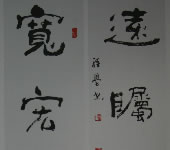 遠矚
寬宏